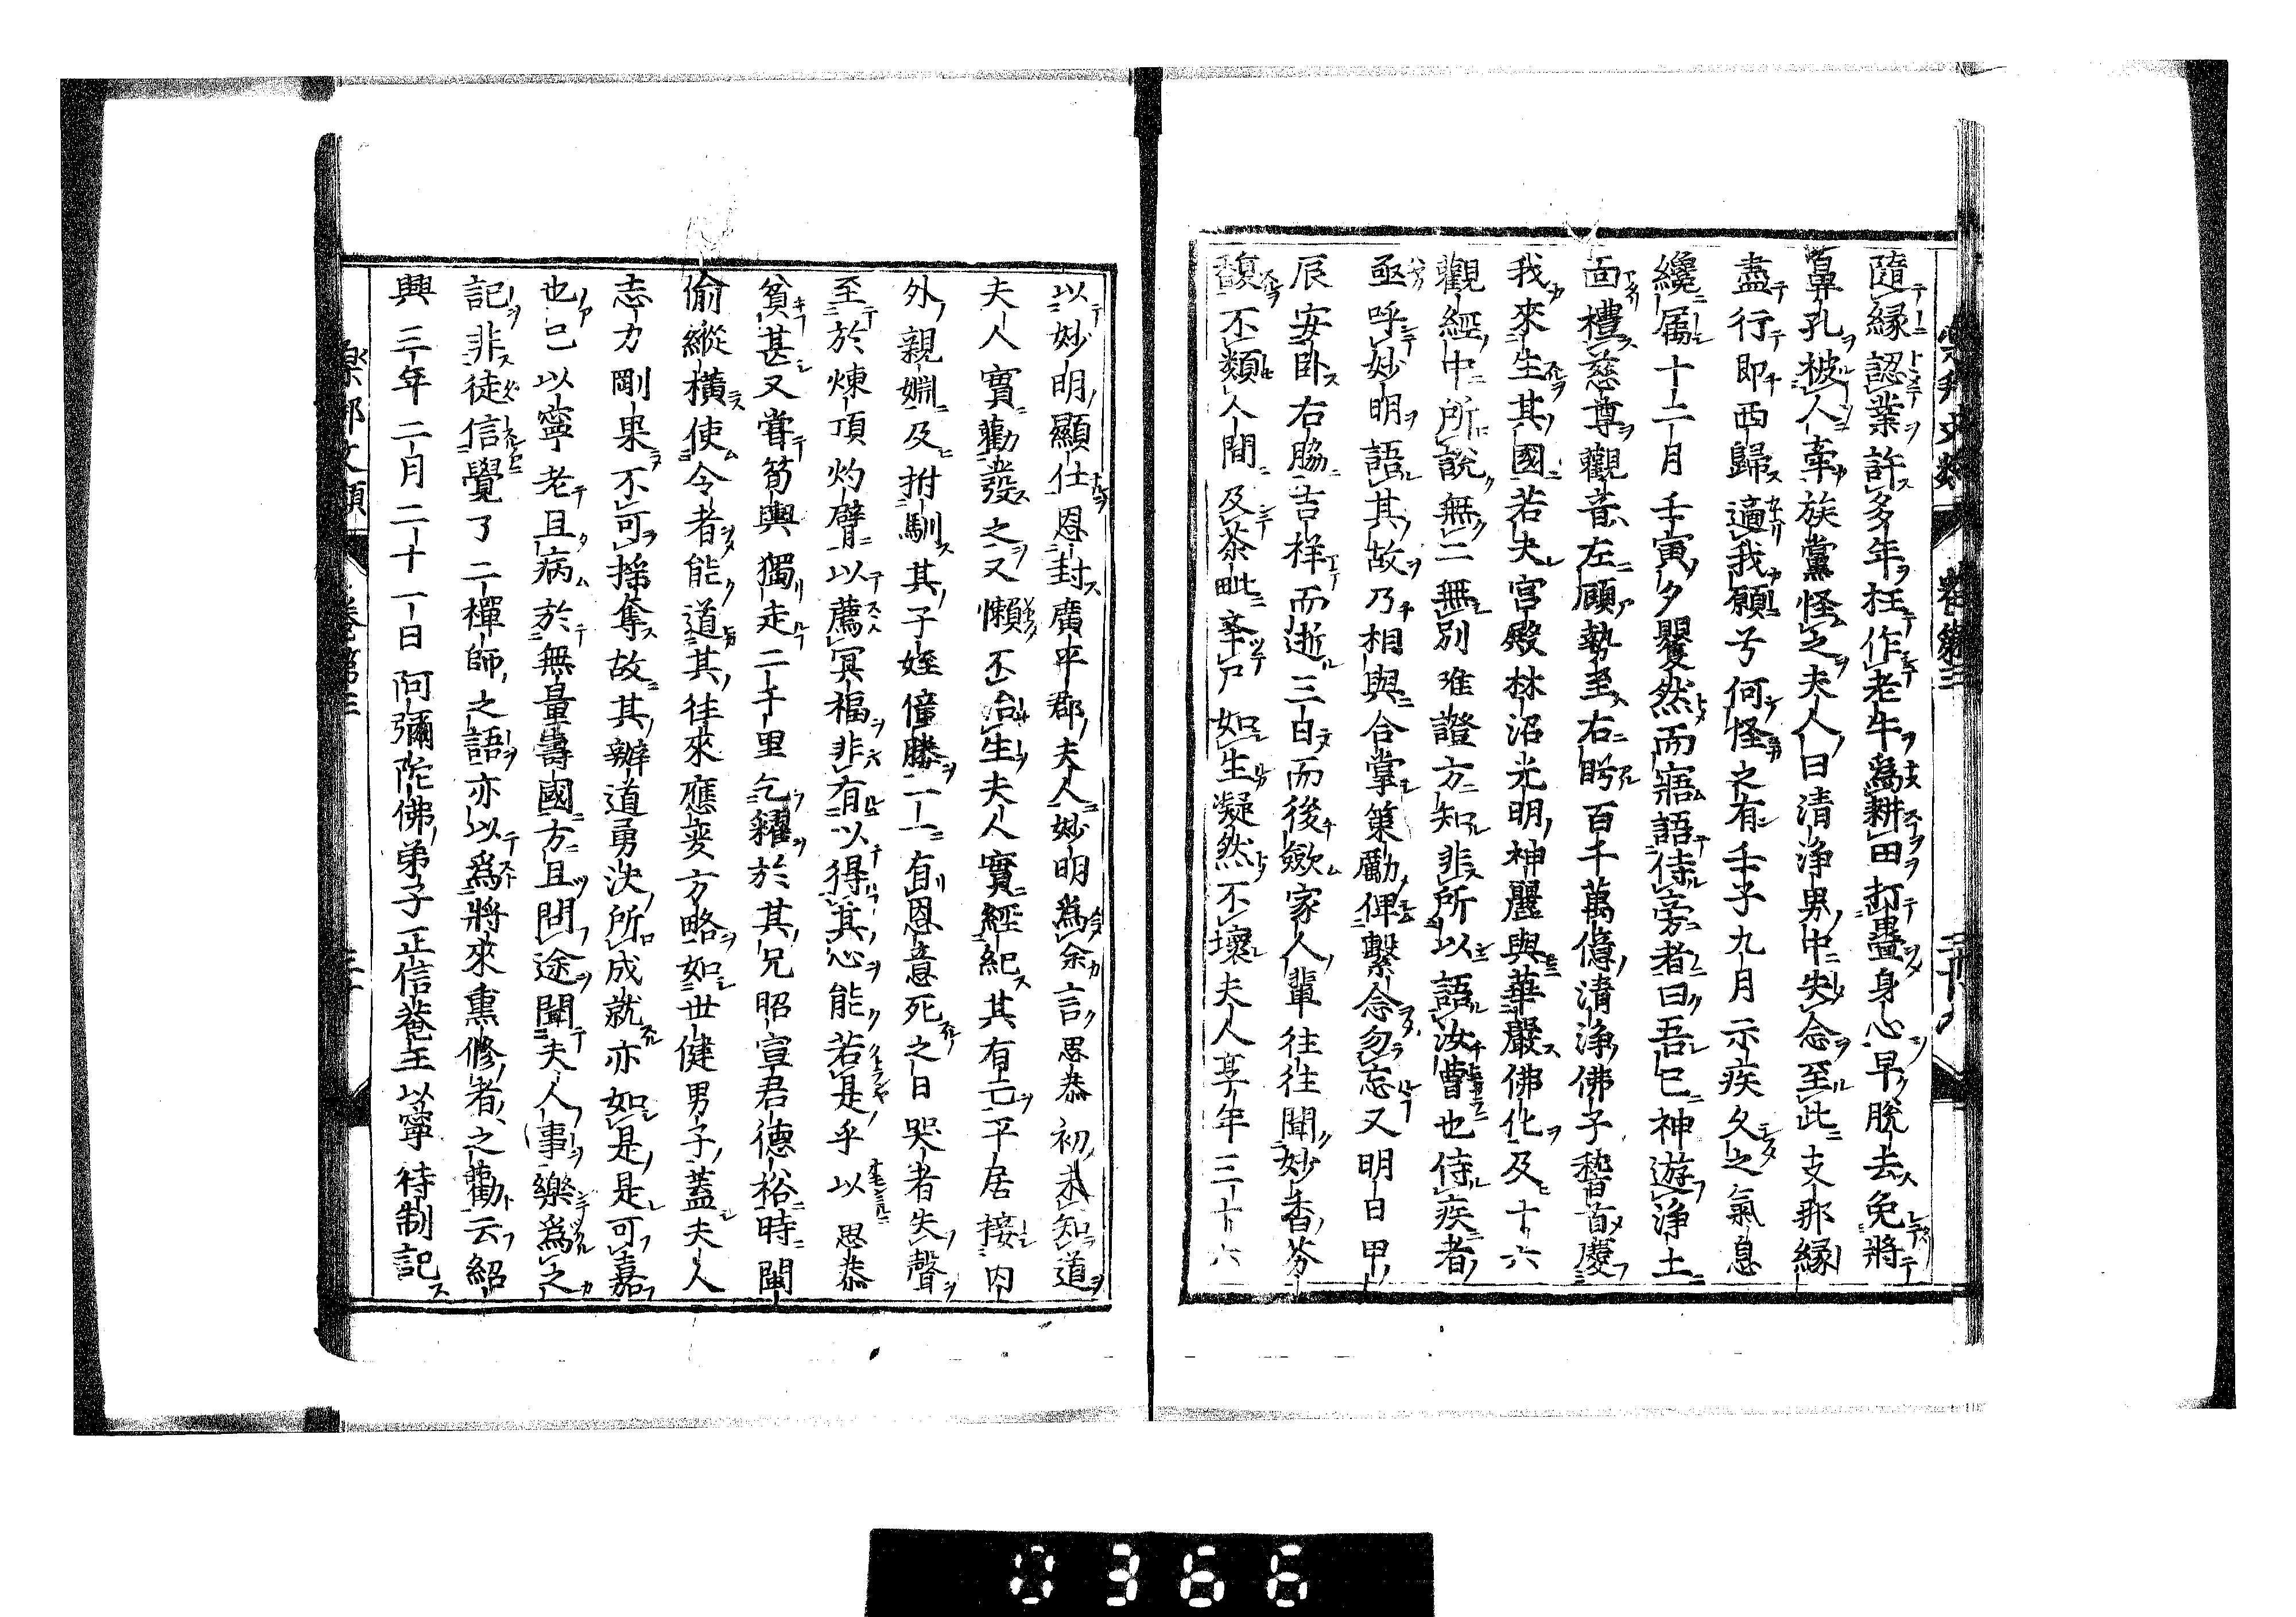 隨緣認業許多年枉作老牛爲耕田打疊身心早脫去免將
鼻孔被人牽族黨怪之夫人曰清淨界中失念至此支那緣
盡行即西歸適我願兮何怪之有壬子九月示疾久之氣息
纔屬十二月壬寅夕矍然而寤語侍旁者曰吾已神遊淨土
面禮慈尊觀音左顧勢至右眄百千萬億清淨佛子稽首慶
我來生其國若夫宮殿林沼光明神麗與華嚴佛化及十六
觀經中所說無二無別唯證方知非所以語汝曹也侍疾者
亟呼妙明語其故乃相與合掌策勵俾繫念勿忘又明日甲
辰安臥右脇吉祥而逝三日而後歛家人輩往往聞妙香芬
馥不類人間及茶毗擧尸如生凝然不壞夫人享年三十六
以妙明顯仕恩封廣平郡夫人妙明爲余言思恭初未知道
夫人實勸發之又懶不治生夫人實經紀其有亡平居接內
外親婣及拊馴其子姪僮勝一一有恩意死之日哭者失聲
至於煉頂灼臂以薦冥福非有以得其心能若是乎以思恭
貧甚又嘗筍輿獨走二千里乞糴於其兄昭宣君德裕時閩
偷縱橫使令者能道其往來應變方略如世健男子蓋夫人
志力剛果不可搖奪故其辦道勇決所成就亦如是是可嘉
也已以寧老且病於無量壽國方且問途聞夫人事樂爲之
記非徒信覺了二禪師之語亦以爲將來熏修者之勸云紹
興三年二月二十一日阿彌陀佛弟子正信菴王以寧待制記
樂邦文類 卷第三
0366